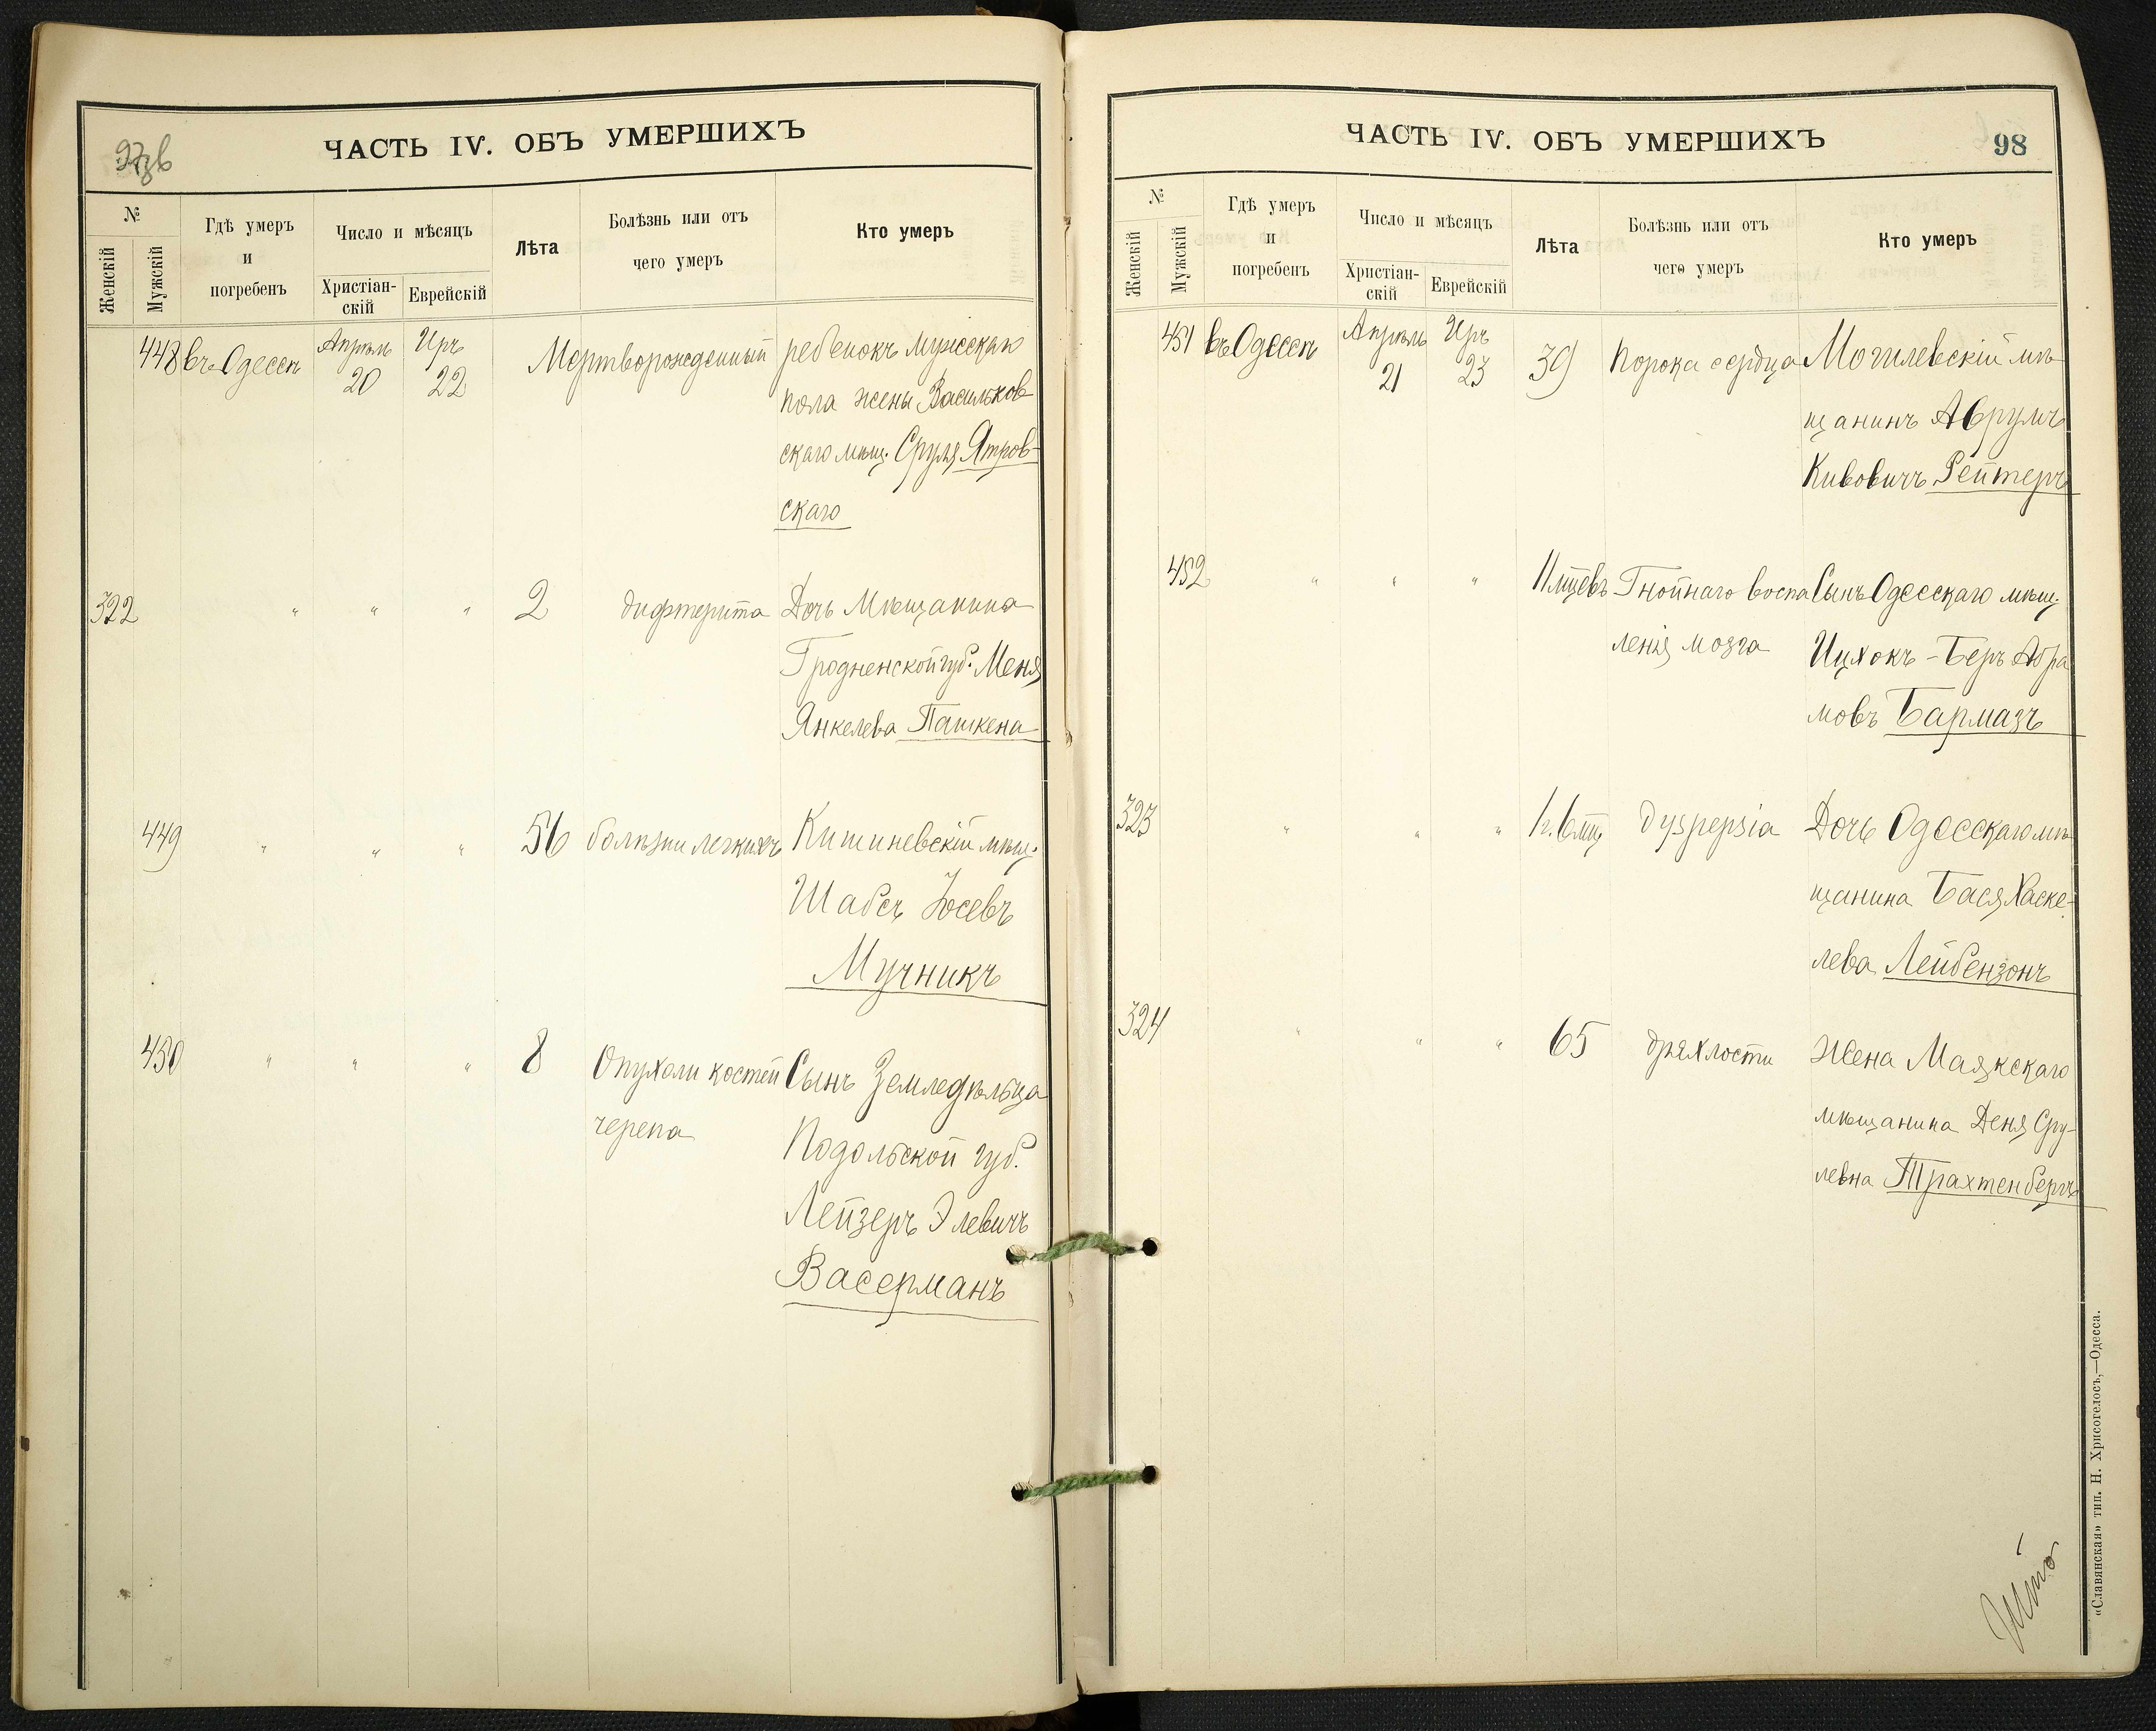 97об
ЧАСТЬ IV. ОБЪ УМЕРШИХЪ
№
Женскій
Мужскій
Гдѣ умеръ
и
погребенъ
Число и мѣсяцъ
Христіан-
скій
Еврейскій
Лѣта
Болѣзнь или отъ
чего умеръ
Кто умеръ
448 въ Одессѣ Апрѣль 20 Иръ 22 Мертворожденный ребенокъ мужскаго
пола жены Васильков
скаго мѣщ. Сруля Ятров-
скаго
322 " " " 2 дифтерита Дочь Мѣщанина
Гродненской губ. Меня
Янкелева Пашкена
449 " " " 56 болѣзни легкихъ Кишиневскій мѣщ.
Шабсъ Іосевъ
Мучникъ
450 " " " 8 Опухоли костей Сынъ Земледѣльца
черепа Подольской губ.
Лейзеръ Элевичъ
Васерманъ
ЧАСТЬ IV. ОБЪ УМЕРШИХЪ
98
№
Женскій
Мужскій
Гдѣ умеръ
и
погребенъ
Число и мѣсяцъ
Христіан-
скій
Еврейскій
Лѣта
Болѣзнь или отъ
чего умеръ
Кто умеръ
451 въ Одессѣ Апрѣль 21 Иръ 23 39 порока сердца Могилевскій мѣ
щанинъ Аврумъ
Кивовичъ Рейтеръ
452 " " " 11 мцевъ Гнойнаго воспа Сынъ Одесскаго мѣщ.
ленія мозга Ицхокъ-Беръ Абра
мовъ Бармазъ
323 " " " 1 г. 6 мц dyspepsia Дочь Одесскаго мѣ
щанина Бася Хаске-
лева Лейбензонъ
324 " " " 65 дряхлости Жена Маякскаго
мѣщанина Деня Сру-
левна Трахтенбергъ
«Славянская» тип. Н. Хрисогелосъ,—Одесса.